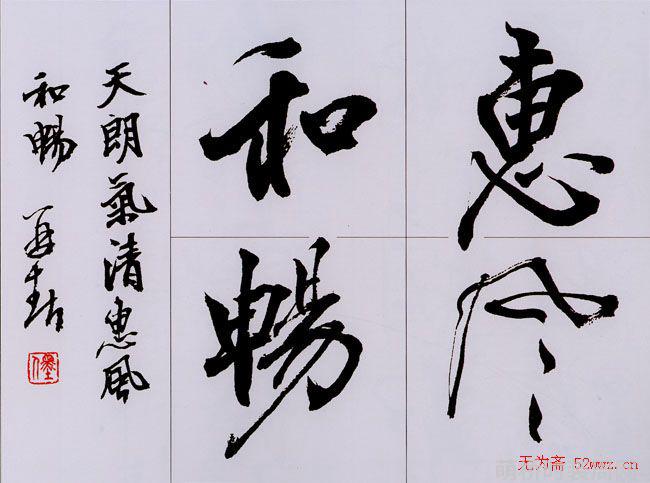 惠风
和暢
天朗氣清惠風
和暢
无为斋 52wwz.cn